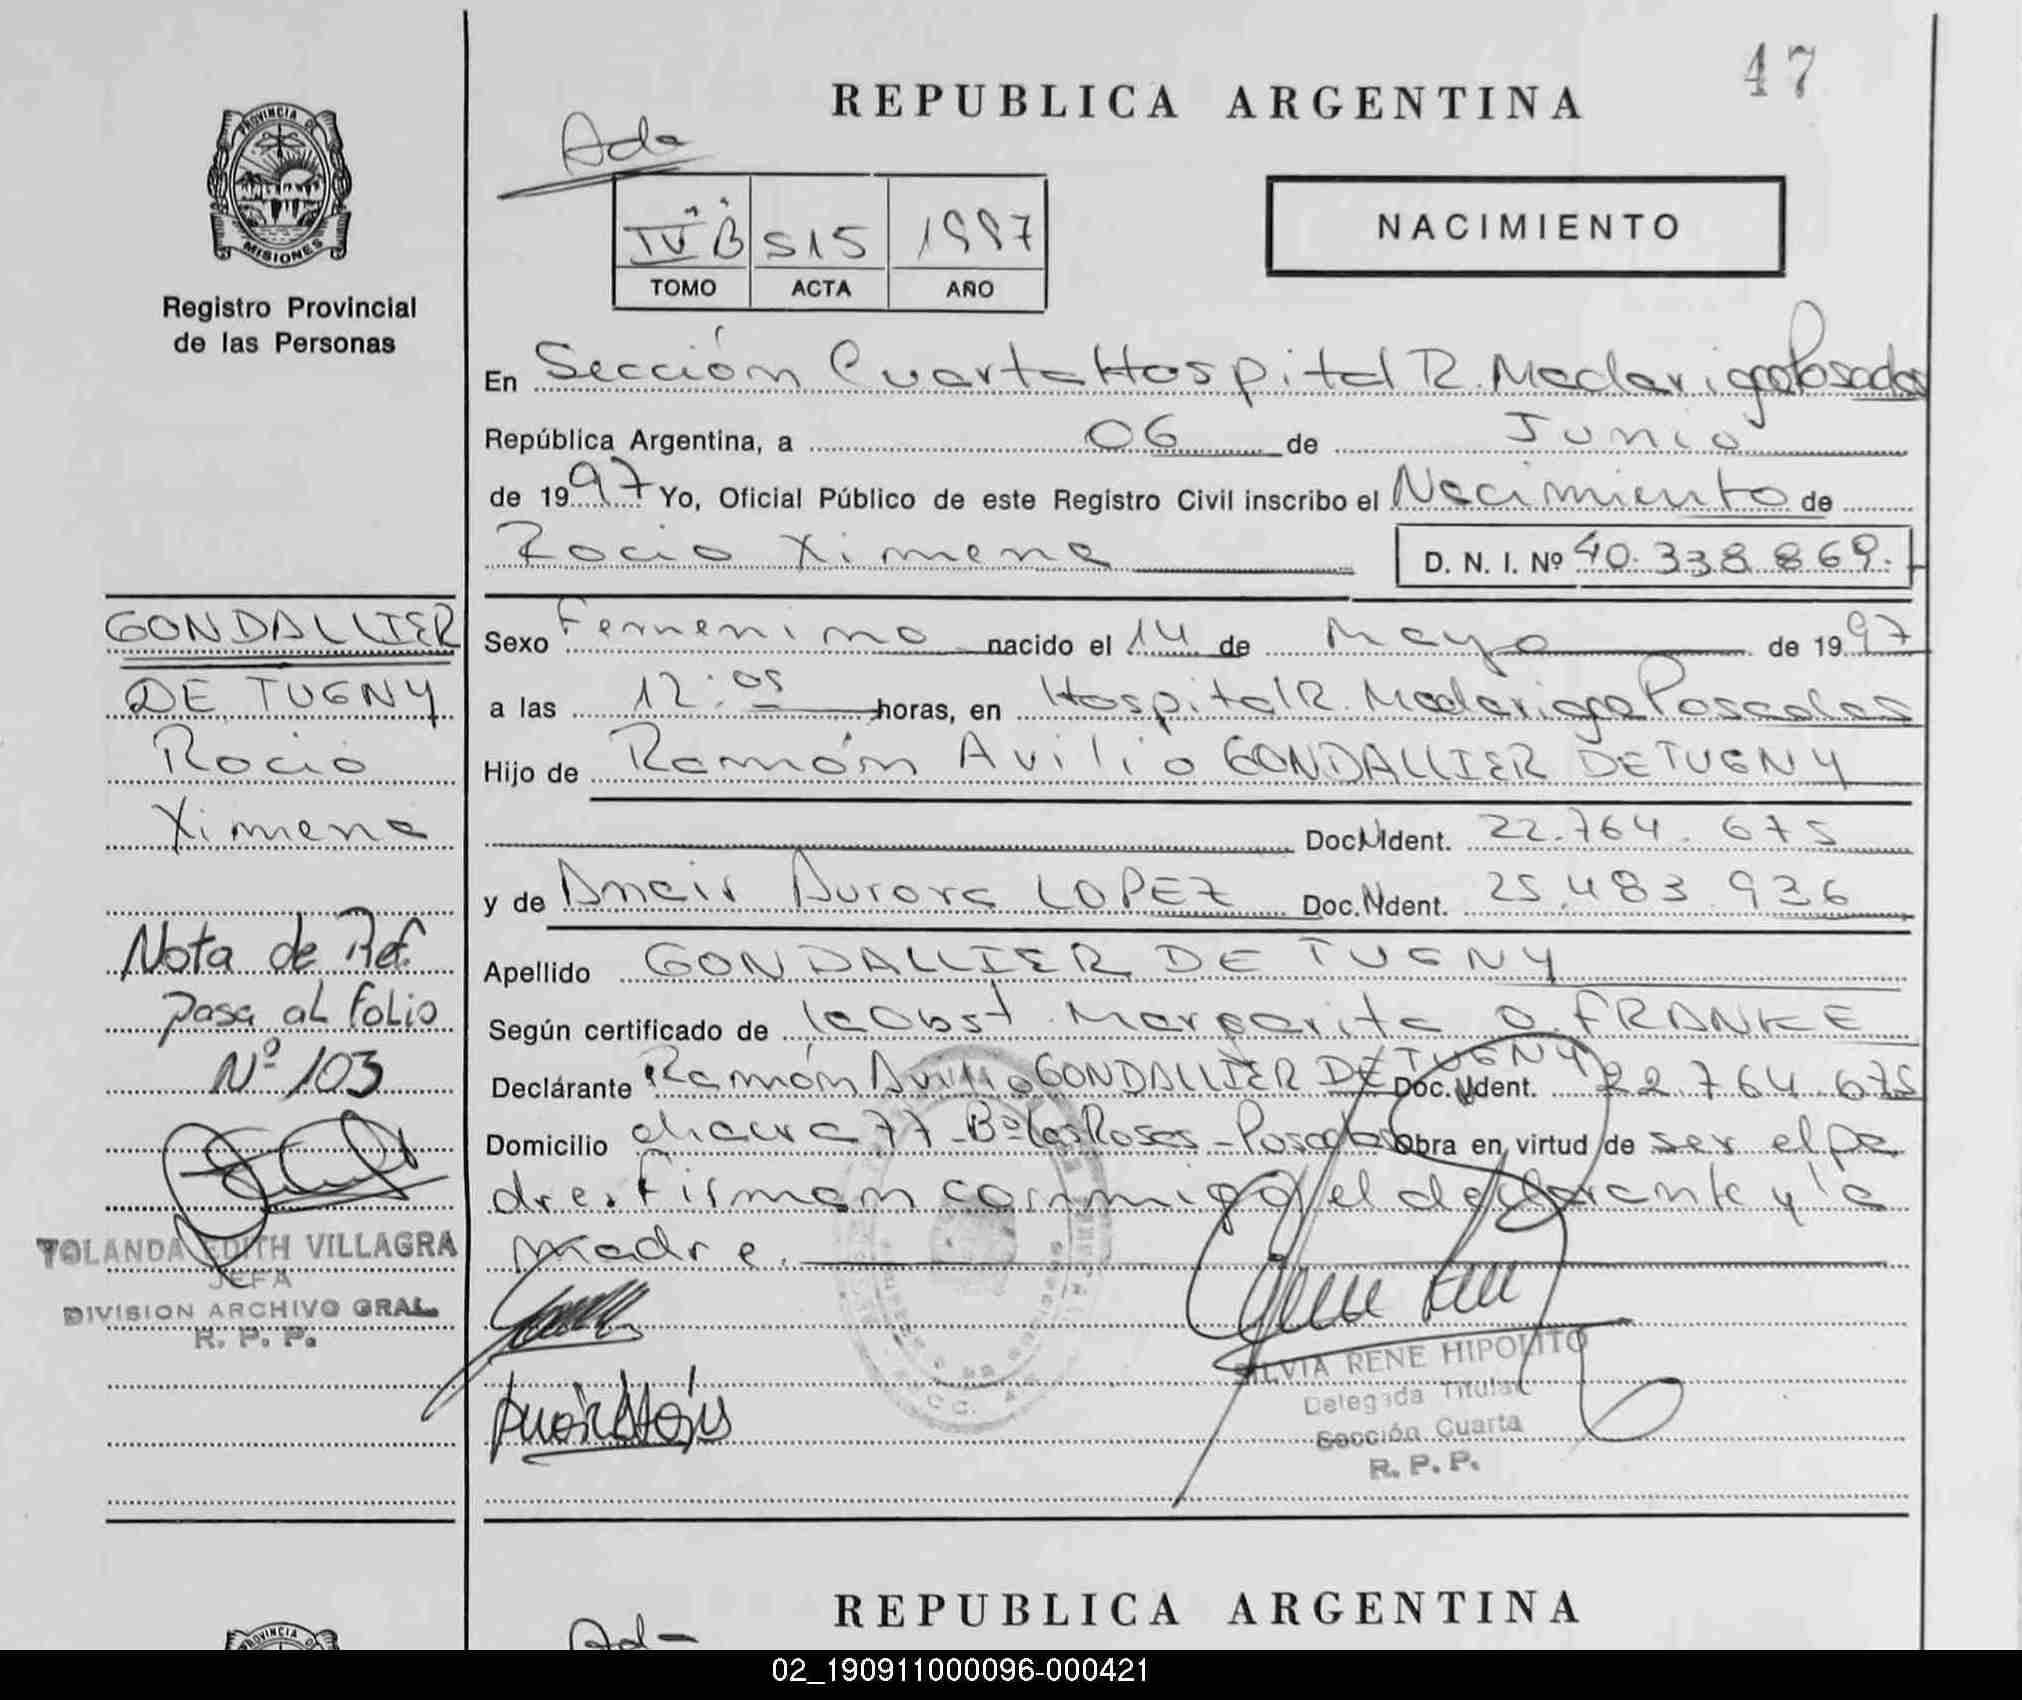 47
REPUBLICA ARGENTINA
PROVINCIA DE
MISIONES
Registro Provincial
de las Personas
NACIMIENTO
IV "B" 515 1997
TOMO ACTA AÑO
En Sección Cuarta Hospital R. Madariaga Posadas
República Argentina, a 06 de Junio
de 1997 Yo, Oficial Público de este Registro Civil inscribo el Nacimiento de
Rocio Ximena D. N. I. Nº 40.338.869.
Sexo Femenino nacido el 14 de Mayo de 1997
a las 12:05 horas, en Hospital R. Madariaga Posadas
Hijo de Ramón Avilio GONDALLIER DE TUGNY
Doc. Ident. 22.764.675
y de Anair Aurora LOPEZ Doc. Ident. 25.483.936
Apellido GONDALLIER DE TUGNY
Según certificado de Obst. Margarita O. FRANKE
Declárante Ramón Avilio GONDALLIER DE TUGNY Doc. Ident. 22.764.675
Domicilio chacra 77-Bº Las Rosas-Posadas Obra en virtud de ser el pa
dre. Firman conmigo el declarante y la
madre.
GONDALLIER
DE TUGNY
Rocio
Ximena
Nota de Ref.
pasa al folio
Nº 103
YOLANDA EDITH VILLAGRA
JEFA
DIVISION ARCHIVO GRAL.
R. P. P.
SILVIA RENE HIPOLITO
Delegada Titular
Sección Cuarta
R. P. P.
REPUBLICA ARGENTINA
02_190911000096-000421